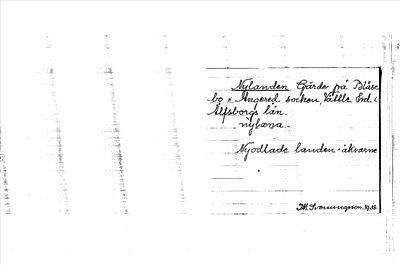 Nylanden Gärde på Bläse-
bo i Angered socken, Vättle hd i
Älfsborgs län.
nylanna.
Nyodlade landen = åkrarne
J.W. Svenungsson. 1938